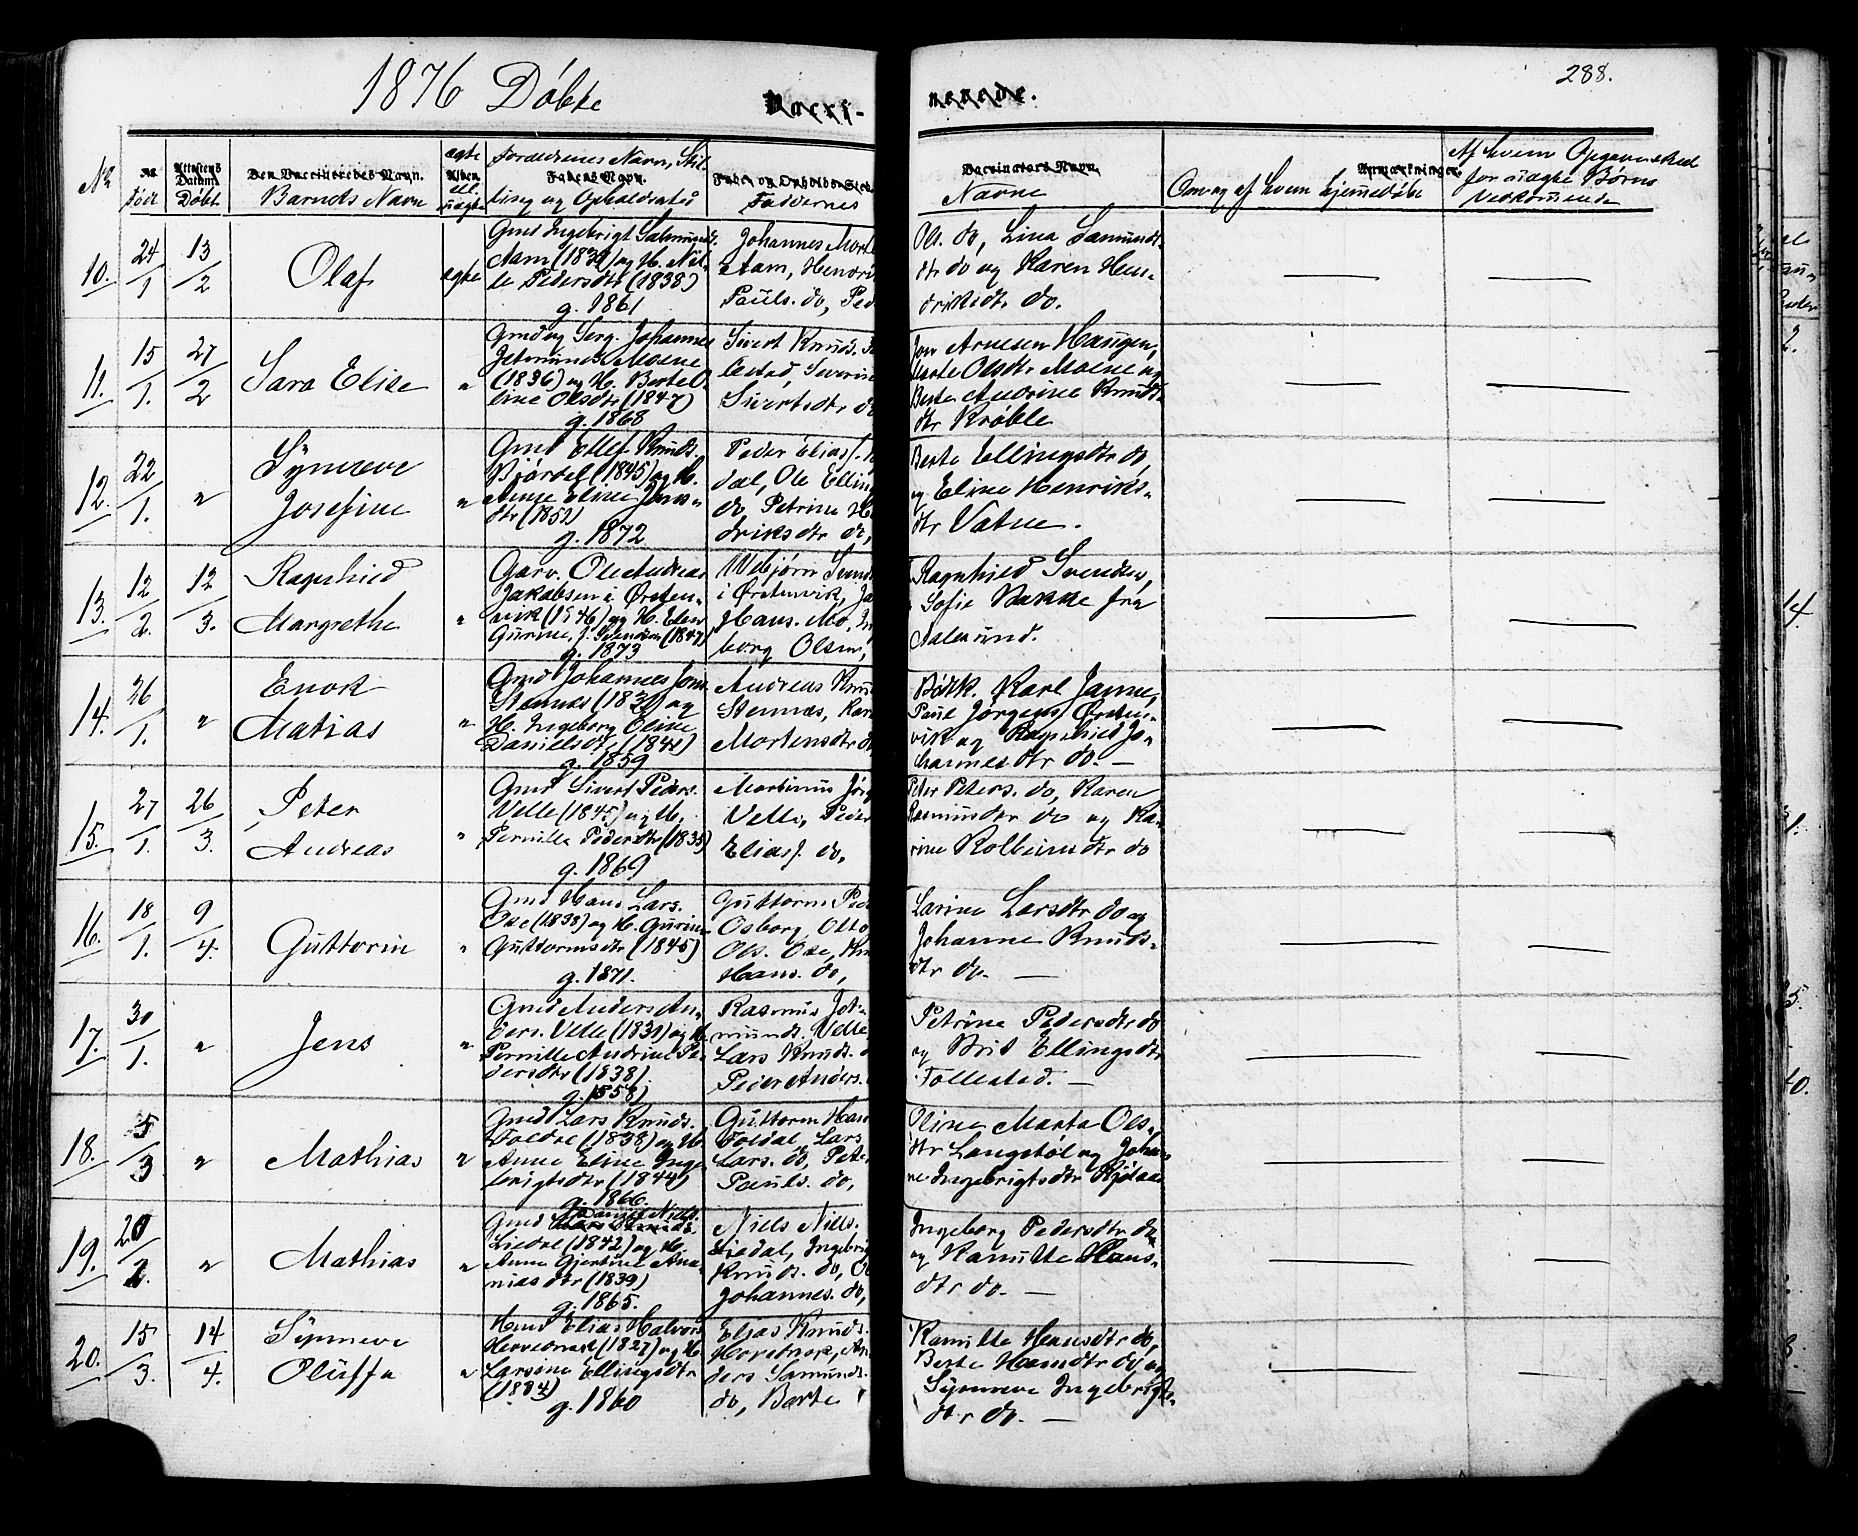 1876 Döbte
Vacci-
nerede.
288.
No
No.
Født
Attestens Datum.
Döbt
Den Vaccineredes Navn.
Barnets Navn
ægte
Alder.
el. uægte
Forældrenes Navn, Stil-
Faderens Navn.
ling og Opholdssted
Faddernes
Vaccinators Navn.
Navne
Anmærkninger.
Om og af hvem hjemmedöbt
Af hvem Opgaven sked
for uægte Börns
Vedkommende
10.
24/1
13/2
Olaf
ægte
Gmd Ingebrigt Salmunds.
Aam (1834) og H. Nil-
le Pedersdtr (1838)
g. 1861
Johannes Mort
Aam, Henrik
Pauls. do, Ped
Ols. do, Lina Samunds-
dtr do og Karen Hen-
driksdtr do.
11.
15/1.
27/2
Sara Elise
"
Gmd og Serg. Johannes
Jetmunds. Moene
(1836) og H. Berte O-
line Olsdtr (1847)
g. 1868
Sivert Knuds.
lestad, Severin
Sivertsdtr do
Jon Arnesen Haugen,
Berte Olsdtr Moene og
Berte Andrine Knuds-
dtr Kröble
12.
22/1.
"
Synneve
Josefine
"
Gmd Ellef Knuds.
Björdal (1845) og H.
Anne Eline Jons-
dtr (1852)
g. 1872
Peder Elias.
dal, Ole Ellin
do Petrine H
driksdtr do,
Berte Ellingsdtr do
og Eline Henriks-
dtr Vatne.
13.
12/2.
12/3.
Ragnhild
Margrethe
"
Garv. Ole Andreas
Jakobsen i Örsten-
vik (1846) og H. Elen
Gurine, f. Svendsen (1847)
g. 1873
Vebjörn Svend
i Örstenvik, Ja
Hans. Mo, In
borg Olsen,
Ragnhild Svendsen,
Sofie Bakke fra
Aalesund.
14.
26/1.
"
Enok
Matias
"
Gmd Johannes Jons.
Stennes (1831) og
H. Ingeborg Oline
Danielsdtr (1841)
g. 1859
Andreas Knu
Stennæs, Kar
Mortensdtr do
Bödk. Karl Janne,
Paul Jörgens. Örsten-
vik og Ragnhild Jo-
hannesdtr do. —
15.
27/1.
26/3.
Peter
Andreas
"
Gmd Sivert Peders.
Velle (1845) og H.
Pernille Pedersdtr (1835)
g. 1869
Martinus Jör
Velle, Peder
Elias. do,
Peter Peters. do, Karen
Rasmusdtr do og Ka-
rine Kolbeinsdtr do
16.
18/1.
9/4.
Guttorm
"
Gmd Hans Lars.
Ose (1838) og H. Gurine
Guttormsdtr (1845)
g. 1871.
Guttorm Ped
Osborg, Otto
Ols. Ose, Knu
Hans. do,
Larine Larsdtr do og
Johanne Knuds-
dtr do. —
17.
30/1.
"
Jens
"
Gmd Anders An-
ders. Velle (1831) og H.
Pernille Andrine Pe-
dersdtr (1838)
g. 1858)
Rasmus Jet-
munds. Velle
Lars Knuds.
Peder Anders.
Petrine Pedersdtr do
og Brit Ellingsdtr
Follestad. —
18.
5/3
"
Mathias
"
Gmd Lars Knuds.
Foldal (1838) og H.
Anne Eline Inge-
brigtsdtr (1844)
g. 1866.
Guttorm Han
Foldal, Lars
Lars. do, Peter
Pauls. do,
Oline Marta Ols-
dtr Langstöl og Johan-
ne Ingebrigtsdtr
19.
20/2.
"
Mathias
"
Gmd Niels.
Liedal (1842) og H.
Anne Gjertine Ana-
niasdtr (1839)
g. 1865.
Niels Niels.
Liedal, Ingebri
Knuds. do,
Johannes. do,
Ingeborg Pedersdtr do
og Kamilte Hans-
dtr do. —
20.
15/3.
14/4.
Synneve
Oluffa
"
Elias Halvors.
Hovednak (1827) og H.
Larsine Ellingsdtr
(1834)
g. 1860
Elias Knuds.
Hovednak, An-
ders Samunds.
do, Berte
Kamilte Hansdtr do,
Berte Hansdtr do og
Synneve Ingebrigts-
dtr do. —